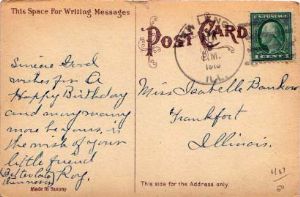 This Space For Writing Messages
POST CARD
Sincere Good
wishes for a
Happy Birthday
and many many
more
is
the wish of your
little friend
Roy.
Better late
than never
Made in
P.M.
ILL.
Miss Isabelle
Frankfort
Illinois.
This side for the Address only.